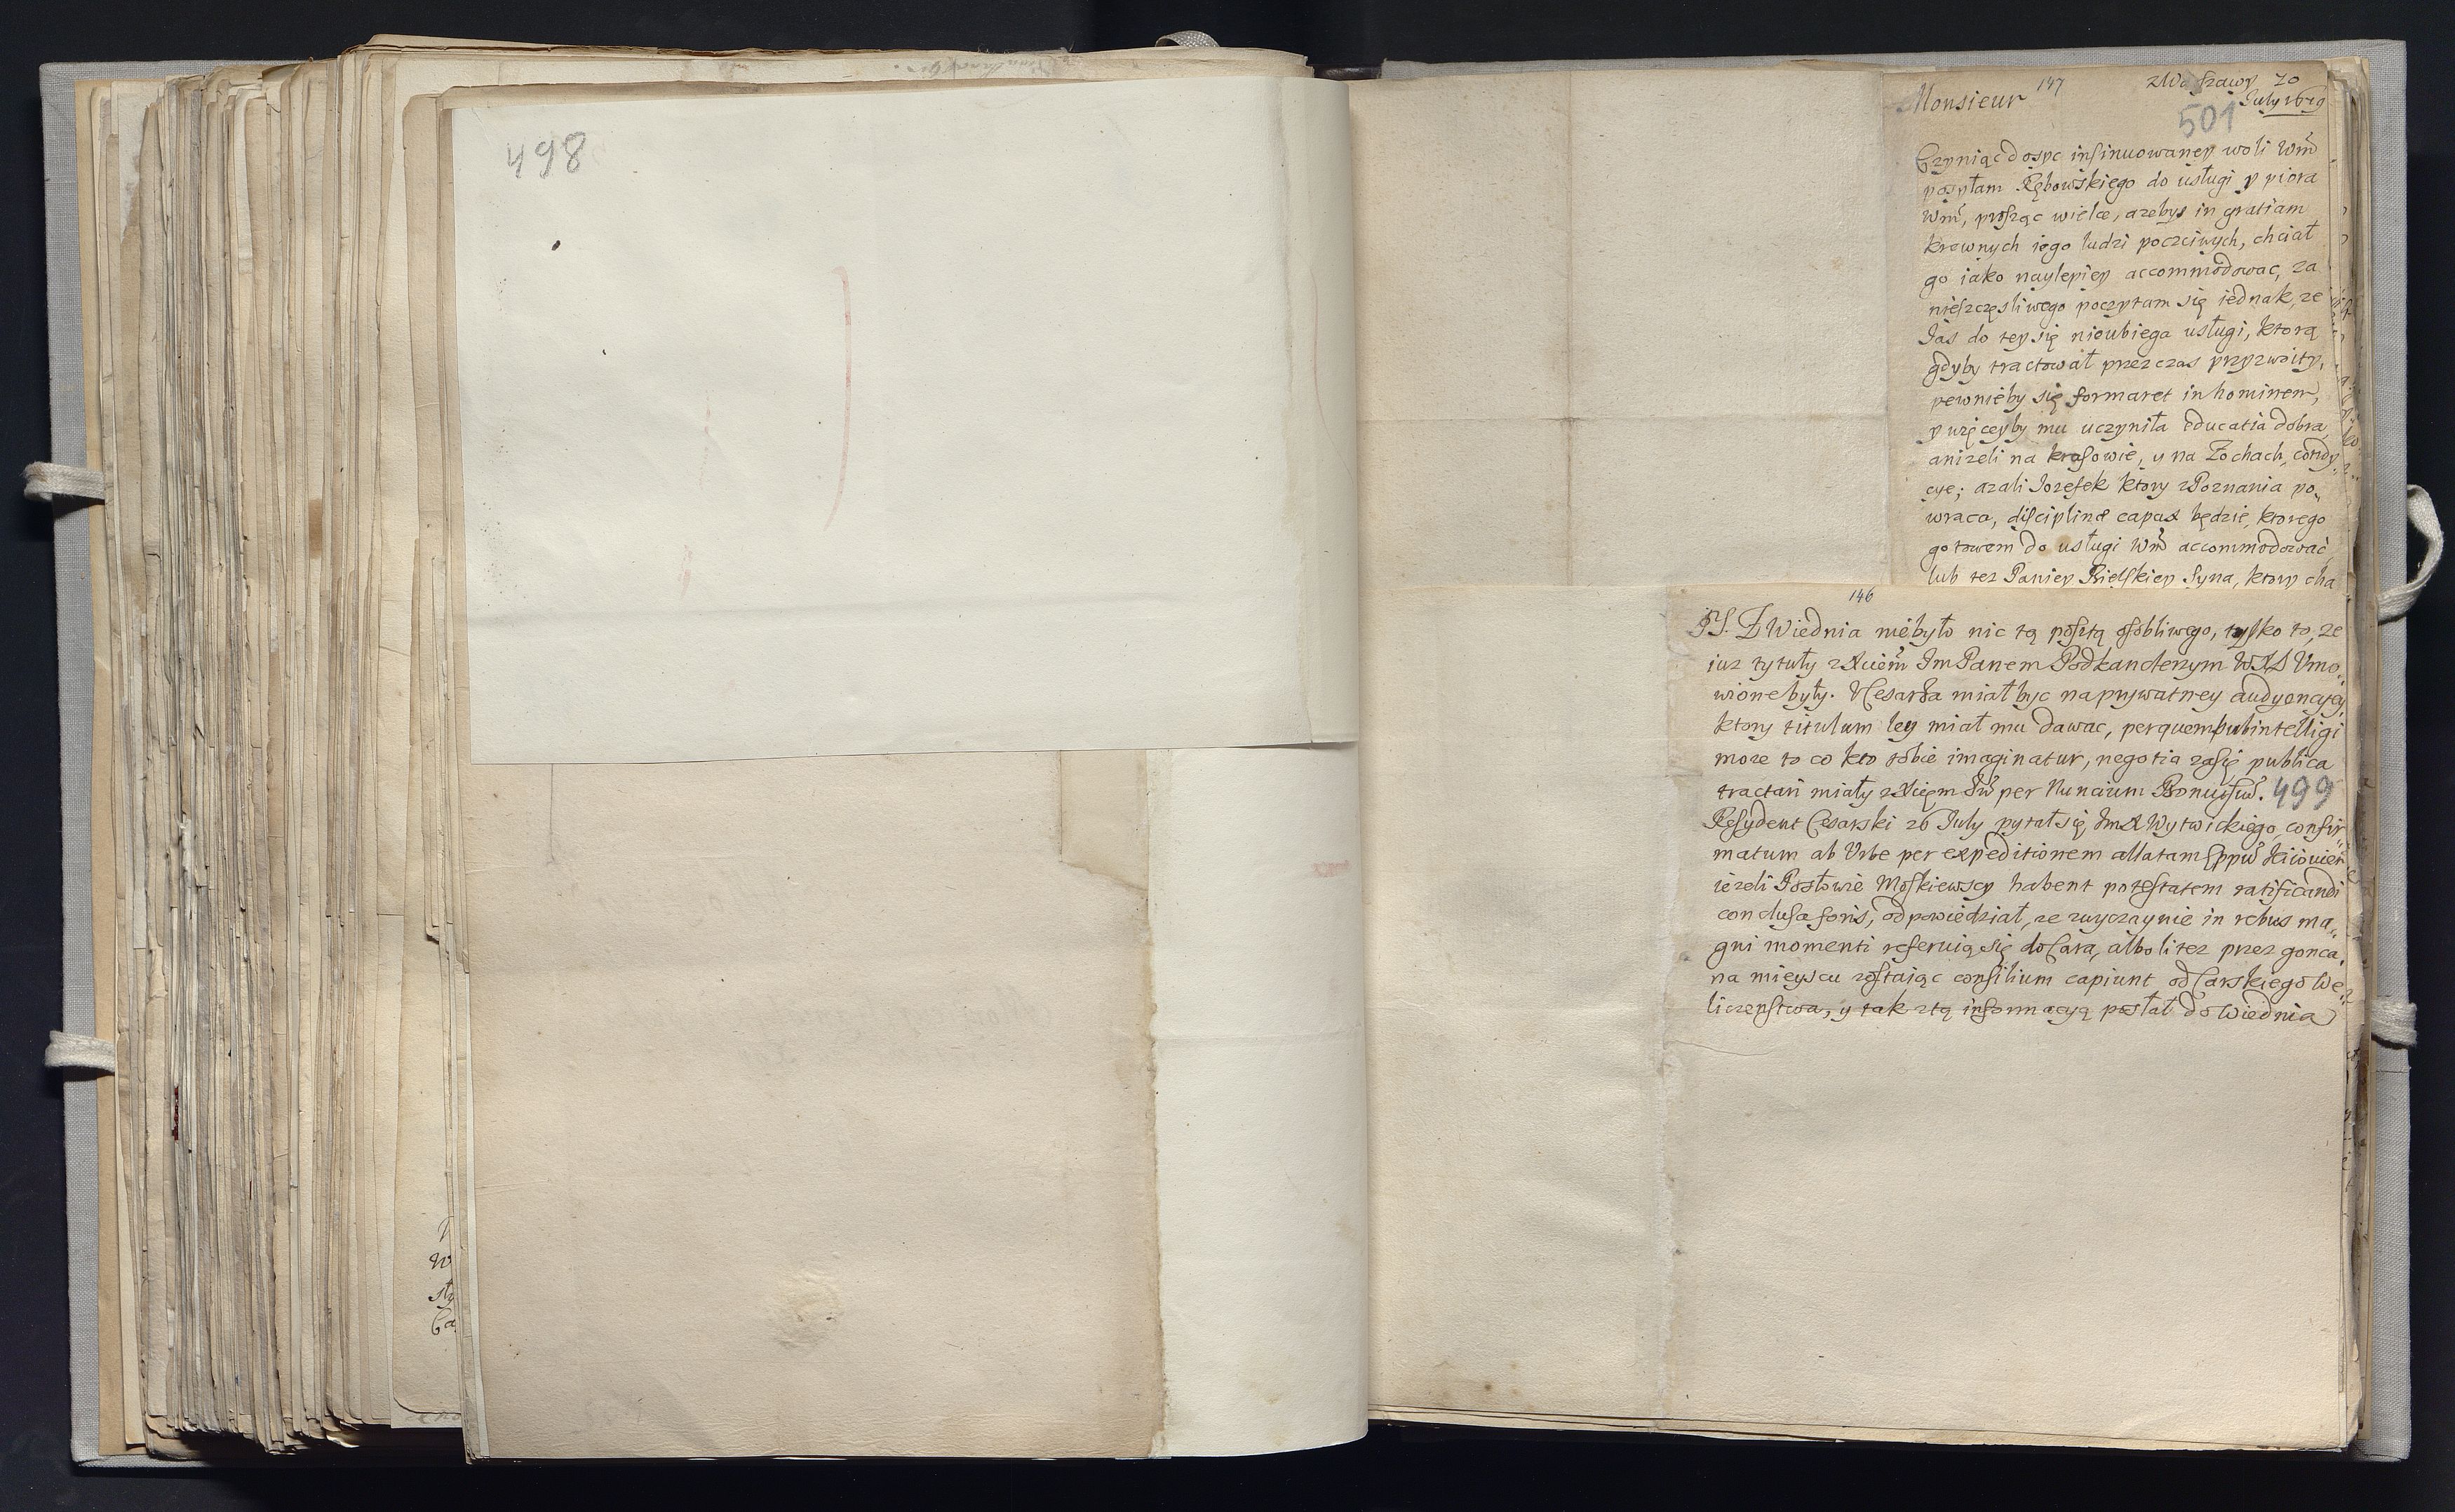 498
147
z Warszawy 20
July 1679
Monsieur
501
Czyniąc dosyc insinuowaney woli Wm̃
posyłam Rębowskiego do usługi y piora
Wm̃, prosząc wielce, azebys in gratiam
krewnych iego ludzi poczciwych, chciał
go iako naylepiey accommodowac, za
nieszczęsliwego poczytam się iednak, ze
Jas do tey się nieubiega usługi, ktorą
gdyby tractował przez czas przyzwoity,
pewnieby się formaret in hominem,
y więceyby mu uczyniła educatia dobra
anizeli na krasowie, y na Zochach, condy„
cye; azali Jozefek ktory z Poznania po„
wraca, disciplinæ capax będzie, ktorego
gotowem do usługi Wm̃ accommodować,
lub tez Paniey Bielskiey Syna, ktory cha
146
PS. Z Wiednia niebyło nic tą posztą osobliwego, tylko to, ze
iuz tytuły z Xciem̃ Jm Panem Podkanclerzym WXL Vmo„
wione były. V Cesarza miał byc na prywatney audyencyey,
ktory titulum ley miał mu dawac, per quem subintelligi
moze to co kto sobie imaginatur, negotia zasię publica
tractari miały z Xięm per Nuncium Bonuisiu. 499
Resydent Cesarski 26 July pytał się JmX Wytwickiego, confir„
matum ab Vrbe per expeditionem allatam Eppũ Kiiovien
iezeli Posłowie Moskiewscy habent potestatem ratificandi
conclusa foris, odpowiedział, ze zwyczaynie in rebus ma„
gni momenti referuią się do Cara, albo li tez przez gonca,
na mieyscu zostaiąc consilium capiunt od Carskiego We„
liczenstwa, y tak z tą informacyą posłał do Wiednia